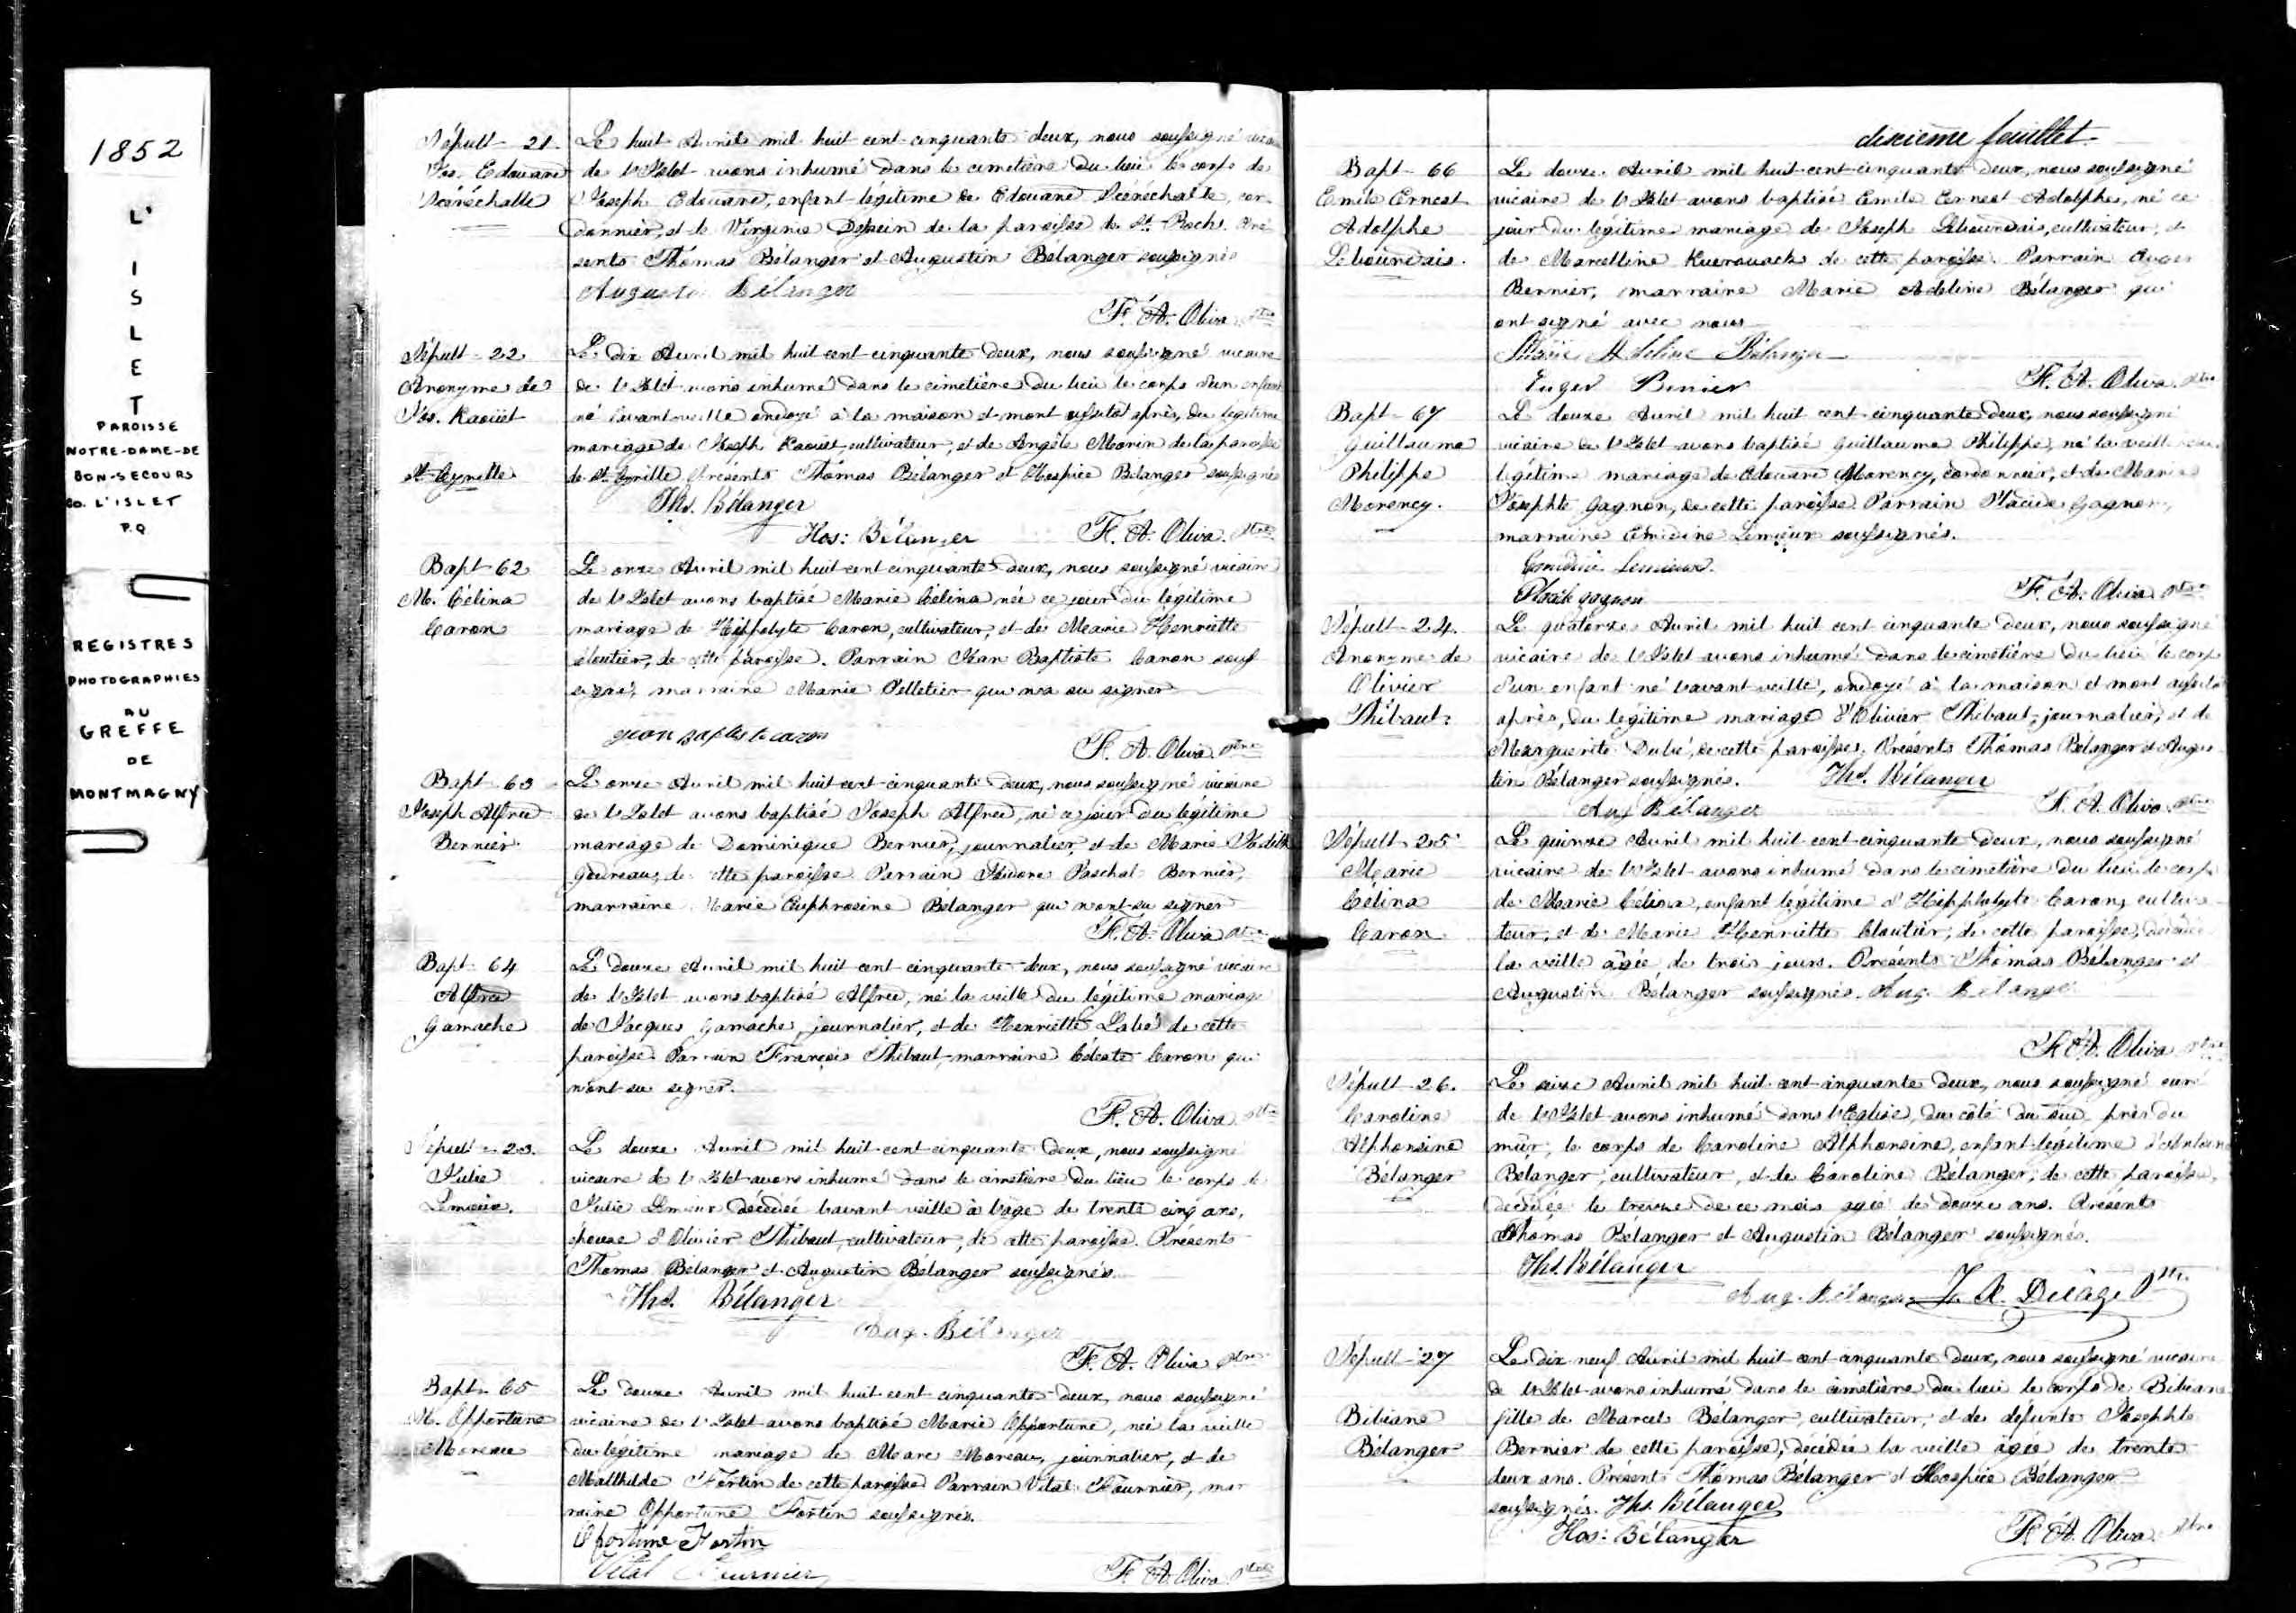 1852
L'
I
S
L
E
T
PAROISSE
NOTRE-DAME-DE
BON-SECOURS
Co. L'ISLET
P.Q
REGISTRES
PHOTOGRAPHIÉS
AU
GREFFE
DE
MONTMAGNY
Sépult - 21
Jos. Edouard
Sénéchalle
Le huit Avril mil huit cent cinquante deux, nous soussigné
de l'Islet avons inhumé dans le cimetière du lieu le corps de
Joseph Edouard, enfant légitime de Edouard Sénéchalle, cor
donnier, et de Virginie Dessein de la paroisse de St. Roch. Pré
sents Thomas Bélanger et Augustin Bélanger soussignés
Bélanger
F. A. Oliva Ptre
Sépult - 22
Anonyme de
Jos. Kaouët
St Cyrille
Le dix Avril mil huit cent cinquante deux, nous soussigné vicaire
de l'Islet avons inhumé dans le cimetière du lieu le corps d'un enfant
né l'avant veille ondoyé à la maison et mort aussitôt après, du légitime
mariage de Joseph Kaouët cultivateur, et de Angèle Morin de la paroisse
de St. Cyrille Présents Thomas Bélanger et Hospice Bélanger soussignés
Ths. Bélanger
Hos: Bélanger F. A. Oliva Ptre
Bapt - 62
M. Célina
Caron
Le onze Avril mil huit cent cinquante deux, nous soussigné vicaire
de l'Islet avons baptisé Marie Célina née ce jour du légitime
mariage de Hippolyte Caron, cultivateur, et de Marie Henriette
Cloutier, de cette paroisse. Parrain Jean Baptiste Caron sous
signé, marraine Marie Pelletier qui n'a su signer
F. A. Oliva Ptre
Bapt - 63
Joseph Alfred
Bernier
Le onze Avril mil huit cent cinquante deux, nous soussigné vicaire
de l'Islet avons baptisé Joseph Alfred, né ce jour du légitime
mariage de Dominique Bernier, journalier, et de Marie
de cette paroisse Parrain Paschal Bernier,
marraine Marie Euphrosine Bélanger qui n'ont su signer
F. A. Oliva Ptre
Bapt - 64
Alfred
Gamache
Le douze Avril mil huit cent cinquante deux, nous soussigné vicaire
de l'Islet avons baptisé Alfred, né la veille du légitime mariage
de Jacques Gamache, journalier, et de Henriette Labé de cette
paroisse Parrain François Thibaut marraine Céleste Caron qui
n'ont su signer.
F. A. Oliva Ptre
Sépult - 23.
Julie
Lemieux.
Le douze Avril mil huit cent cinquante deux, nous soussigné
vicaire de l'Islet avons inhumé dans le cimetière du lieu le corps de
Julie Lemieux décédée l'avant veille à l'âge de trente cinq ans,
épouse d'Olivier Thibaut, cultivateur, de cette paroisse. Présents
Thomas Bélanger et Augustin Bélanger soussignés
Ths. Bélanger
Aug. Bélanger
F. A. Oliva Ptre
Bapt - 65
M. Opportune
Moreau
Le douze Avril mil huit cent cinquante deux, nous soussigné
vicaire de l'Islet avons baptisé Marie Opportune, née la veille
du légitime mariage de Marc Moreau, journalier, et de
Mathilde Fortin de cette paroisse Parrain Vital Fournier, mar
raine Opportune Fortin soussignés.
Oportune Fortin
Vital Fournier
F. A. Oliva Ptre
dixième feuillet.
Bapt - 66
Emile Ernest
Adolphe
Lebourdais.
Le douze Avril mil huit cent cinquante deux, nous soussigné
vicaire de l'Islet avons baptisé Emile Ernest Adolphe, né ce
jour du légitime mariage de Joseph Lebourdais, cultivateur, et
de Marcelline Kuerouack de cette paroisse. Parrain
Bernier, marraine Marie Adeline Bélanger qui
ont signé avec nous
Marie Adeline Bélanger
Bernier F. A. Oliva Ptre
Bapt - 67
Guillaume
Philippe
Morency.
Le douze Avril mil huit cent cinquante deux, nous soussigné
vicaire de l'Islet avons baptisé Guillaume Philippe, né la veille
légitime mariage de Edouard Morency, cordonnier, et de Marie
Josephte Gagnon, de cette paroisse Parrain Placide Gagnon,
marraine Emédine Lemieux soussignés.
Lemieux.
Placide gagnon F. A. Oliva Ptre
Sépult - 24.
Anonyme de
Olivier
Thibaut
Le quatorze Avril mil huit cent cinquante deux, nous soussigné
vicaire de l'Islet avons inhumé dans le cimetière du lieu le corps
d'un enfant né l'avant veille, ondoyé à la maison et mort aussitôt
après, du légitime mariage d'Olivier Thibaut, journalier, et de
Marguerite Dubé, de cette paroisse. Présents Thomas Bélanger et Augus
tin Bélanger soussignés. Ths. Bélanger
Aug Bélanger F. A. Oliva Ptre
Sépult - 25
Marie
Célina
Caron
Le quinze Avril mil huit cent cinquante deux, nous soussigné
vicaire de l'Islet avons inhumé dans le cimetière du lieu le corps
de Marie Célina, enfant légitime d'Hippolyte Caron, cultiva
teur, et de Marie Henriette Cloutier, de cette paroisse, décédée
la veille âgée de trois jours. Présents Thomas Bélanger et
Augustin Bélanger soussignés. Aug. Bélanger
F. A. Oliva Ptre
Sépult - 26.
Caroline
Alphonsine
Bélanger
Le seize Avril mil huit cent cinquante deux, nous soussigné curé
de l'Islet avons inhumé dans l'Eglise, du côté du sud près du
mur, le corps de Caroline Alphonsine, enfant légitime d'Antoine
Bélanger, cultivateur, et de Caroline Bélanger, de cette paroisse,
décédée le treize de ce mois agée de douze ans. Présents
Thomas Bélanger et Augustin Bélanger soussignés.
Ths. Bélanger
Aug. Bélanger F. X. Delâge Ptr.
Sépult - 27
Bibiane
Bélanger
Le dix neuf Avril mil huit cent cinquante deux, nous soussigné vicaire
de l'Islet avons inhumé dans le cimetière du lieu le corps de Bibiane
fille de Marcel Bélanger, cultivateur, et de défunte Josephte
Bernier de cette paroisse, décédée la veille âgée de trente
deux ans. Présent Thomas Bélanger et Hospice Bélanger
soussignés. Ths. Bélanger
Hos: Bélanger F. A. Oliva. Ptre